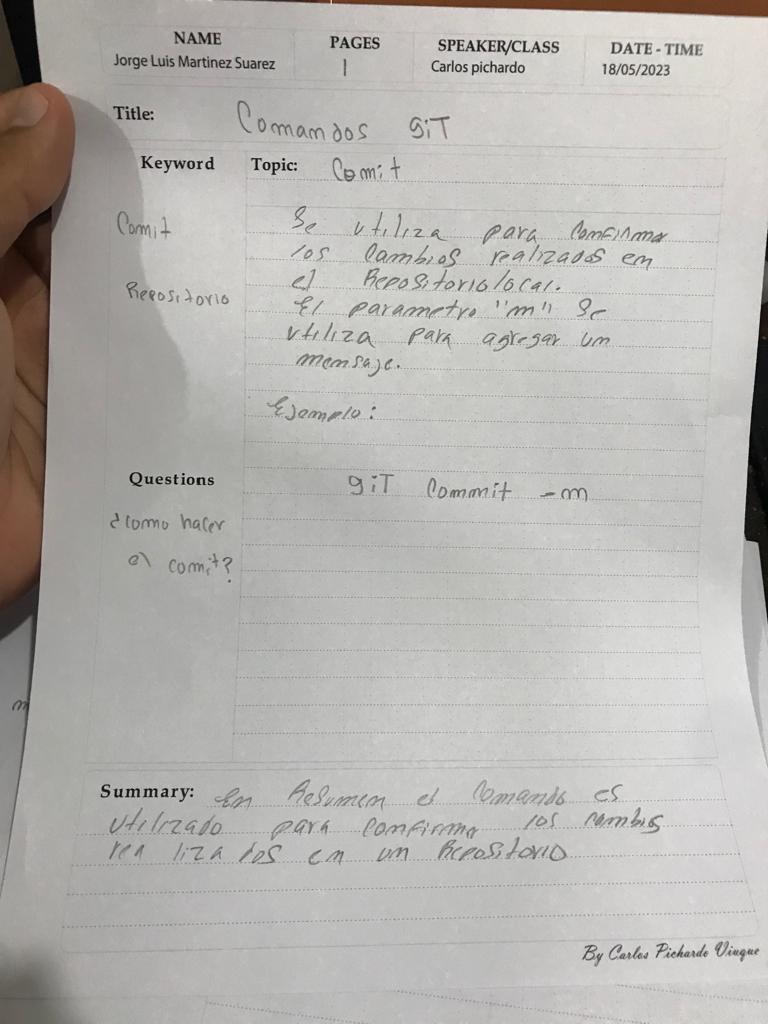 NAME PAGES SPEAKER/CLASS DATE - TIME
Jorge Luis Martinez Suarez 1 Carlos pichardo 18/05/2023
Title: Comandos giT
Keyword Topic: Comit
Comit Se utiliza para Confirmar
los Cambios realizados en
el Repositorio local.
Repositorio El parametro "m" Se
utiliza para agregar un
mensaje.
Ejemplo:
Questions giT Commit -m
¿como hacer
el comit?
Summary: En Resumen el Comando es
utilizado para confirmar los cambios
rea lizados en un Repositorio
By Carlos Pichardo Viuque